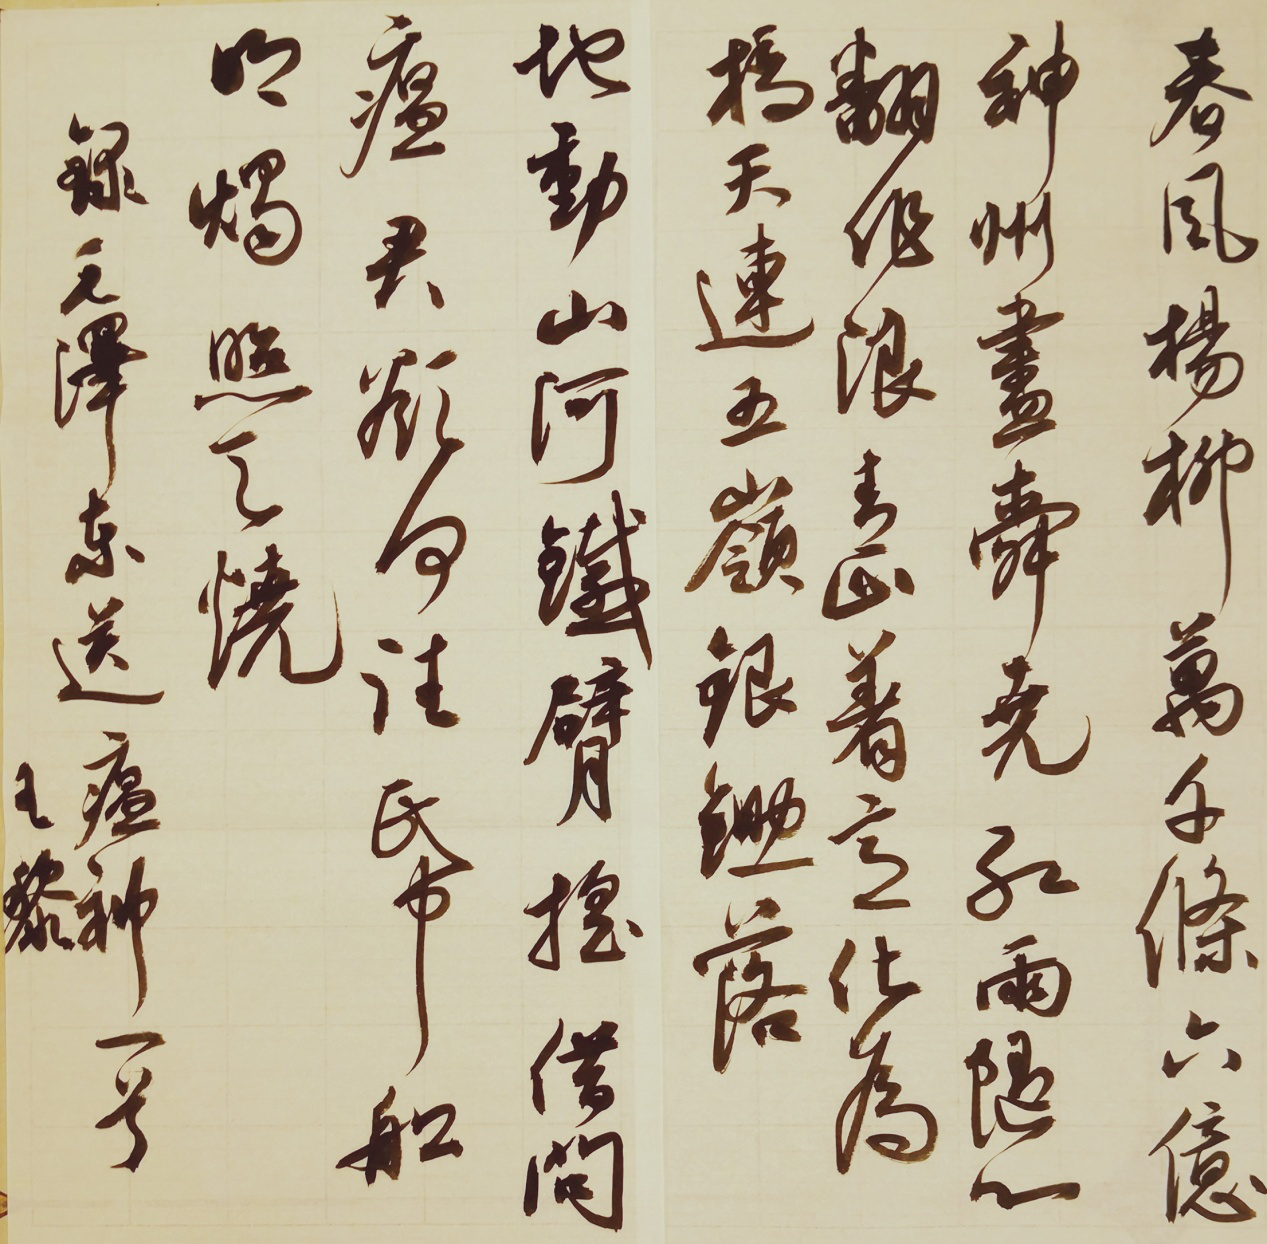 春風楊柳萬千條六億
神州盡舜堯紅雨隨心
翻作浪青山着意化為
橋天連五嶺銀鋤落
地動山河鐵臂搖借問
瘟君欲何往帋船
明燭照天燒
錄毛澤東送瘟神一首
王黎